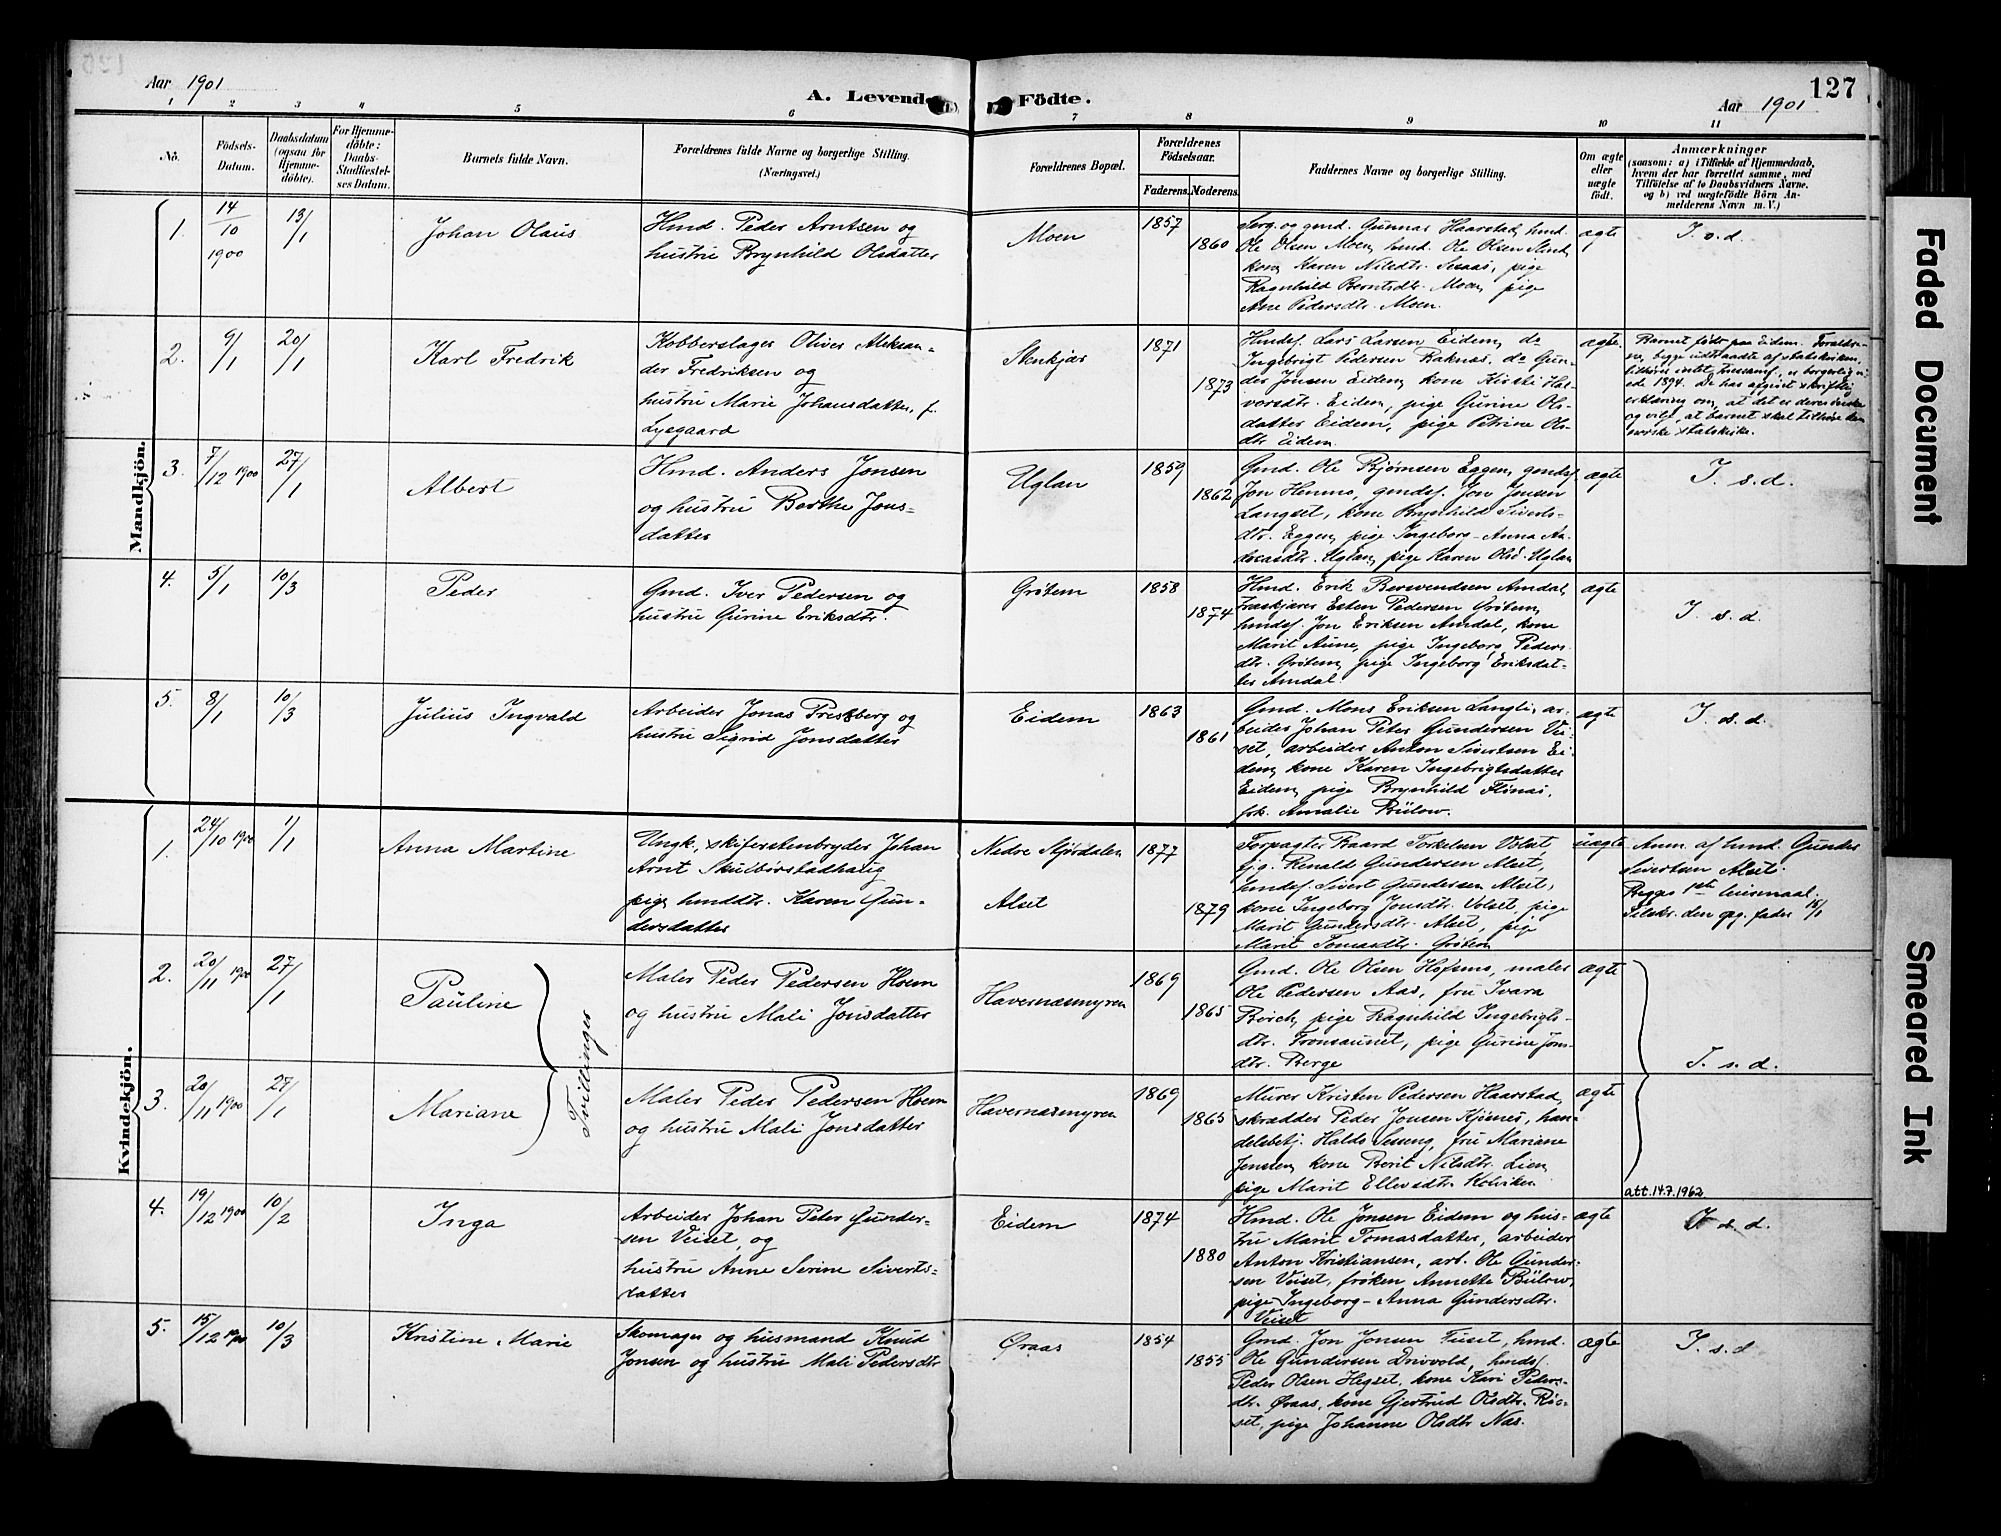 127
Aar 1901
A. Levende Födte.
Aar 1901
1 2 3 4 5 6 7 8 9 10 11
No.
Födsels-Datum.
Daabsdatum (ogsaa for Hjemmedöbte).
For Hjemmedöbte: Daabs-Stadfæstelses Datum.
Barnets fulde Navn.
Forældrenes fulde Navne og borgerlige Stilling. (Næringsvei.)
Forældrenes Bopæl.
Forældrenes Födselsaar.
Faderens. Moderens.
Faddernes Navne og borgerlige Stilling.
Om ægte eller uægte födt.
Anmærkninger
(saasom: a) i Tilfælde af Hjemmedaab,
hvem der har forrettet samme, med
Tilföielse af to Daabsvidners Navne.
og b) ved uægtefödte Börn An-
melderens Navn m. V.)
Mandkjön.
1.
14/10 1900
13/1
Johan Olaus
Hmd. Peder Arntsen og
hustru Brynhild Olsdatter
Moen
1857
1860
Serg. og gmd. Gunnar Haarstad, hmd.
Ole Olsen Moen, hmd. Ole Olsen
kone Karen Nilsdtr. Sesaas, pige
Ragnhild Berntsdtr. Moen, pige
Ane Pedersdtr. Moen.
ægte
I. s. d.
2.
9/1
20/1
Karl Fredrik
Kobberslager Oliver Aleksan-
der Fredriksen og
hustru Marie Johansdatter, f.
Lysgaard
Stenkjær
1871
1873
Hmdsf. Lars Larsen Eidem, do
Ingebrigt Pedersen Raknes, do Gun-
der Jonsen Eidem, kone Kirsti Hal-
vorsdtr. Eidem, pige Gurine Ols-
datter Eidem, pige Petrine Ols-
dtr. Eidem.
ægte.
Barnet født paa Eidem. Foræld-
ne, begge udtraadte af statskirken,
tilhøre intet trossamf., er borgerlig vi-
ede 1894. De har afgivet skriftlig
erklæring om, at det er deres ønske
og vilje, at barnet skal tilhøre den
norske statskirke.
3.
7/12 1900
27/1
Albert
Hmd. Anders Jonsen
og hustru Berthe Jons-
datter
Uglan
1859
1862
Gmd. Ole Bjørnsen Eggen, gmdsf.
Jon Hemmo, gmdsf. Jon Jensen
Langset, kone Brynhild Siverts-
dtr. Eggen, pige Ingeborg-Anna An-
dreasdtr. Uglan, pige Karen Olsd. Uglan
ægte
I. s. d.
4.
5/1
10/3
Peder
Gmd. Iver Pedersen og
hustru Gurine Eriksdtr.
Grötem
1858
1874
Hmd. Erik Bersvendsen Amdal,
træskjærer Esten Pedersen Grötem,
hmdsf. Jon Eriksen Amdal, kone
Marit Aune, pige Ingeborg Peders-
dtr. Grötem, pige Ingeborg Eriksdat-
ter Amdal.
ægte
I. s. d.
5.
8/1
10/3
Julius Ingvald
Arbeider Jonas Prestberg og
hustru Sigrid Jonsdatter
Eidem
1863
1861
Gmd. Mons Eriksen Langli, ar-
beider Johan Peter Gundersen Vei-
set, arbeider Anton Sivertsen Ei-
dem, kone Karen Ingebrigtsdatter
Eidem, pige Brynhild Flönes,
frk. Amalie Bülow.
ægte
I. s. d.
Kvindekjön.
1.
24/10 1900
1/1
Anna Martine
Ungk., skiferstenbryder Johan
Arnt Skulbörstadhaug
pige, hmddtr. Karen Gun-
dersdatter
Nedre Stjørdalen
Alset
1877
1879
Forpagter Baard Torkelsen Volset
Renald Gundersen Alset,
hmdsf. Sivert Gundersen Alset,
kone Ingeborg Jonsdtr. Volset, pige
Marit Gundersdtr. Alset, pige
Marit Tomasdtr. Grötem
uægte
Anm. af hmd. Gunder
Sivertsen Alset.
Begges 1ste leiermaal.
Tilskr. den opg. fader 15/1
2.
20/11 1900
27/1
Pauline
Tvillinger
Maler Peder Pedersen Hoem
og hustru Mali Jonsdatter
Havernæsmyren
1869
1865
Gmd. Ole Olsen Hofsmo, maler
Ole Pedersen Aas, fru Ivara
Birch, pige Ragnhild Ingebrigts-
dtr. Tronsaunet, pige Gurine Jons-
dtr. Berge
ægte
I. s. d.
3.
20/11 1900
27/1
Mariane
Maler Peder Pedersen Hoem
og hustru Mali Jonsdatter
Havernæsmyren
1869
1865
Murer Kristen Pedersen Haarstad,
skrædder Peder Jonsen Kjösnes, han-
delsbetj. Haldo Sesseng, fru Mariane
Jenssen, kone Berit Nilsdtr. Lien,
pige Marit Ellevsdtr. Kolviken
ægte
att. 14.7.1962
4.
19/12 1900
10/2
Inga
Arbeider Johan Peter Gunder-
sen Veiset, og
hustru Anne Serine Siverts-
datter
Eidem
1874
1880
Hmd. Ole Jonsen Eidem og hus-
tru Marit Tomasdatter, arbeider
Anton Kristiansen, arb. Ole Gunder-
sen Veiset, frøken Annette Bülow,
pige Ingeborg-Anna Gundersdtr.
Veiset
ægte
I. s. d.
5.
15/12 1900
10/3
Kristine Marie
Skomager og husmand Knud
Jonsen og hustru Mali Pedersdtr
Øraas
1854
1855
Gmd. Jon Jonsen Fuset, hmd.
Ole Gundersen Drivvold, hmdsf.
Peder Olsen Hegset, kone Kari Peders-
dtr. Øraas, kone Gjertrud Olsdtr. Rös-
set, pige Johanne Olsdtr Næs.
ægte
I. s. d
Faded Document
Smeared Ink